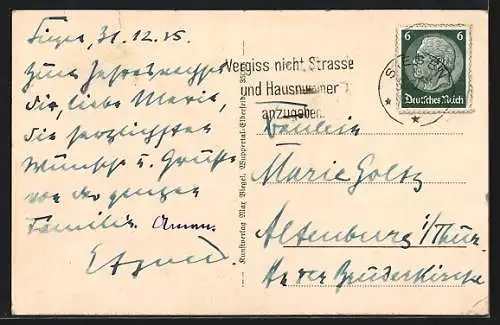 31.12.35
Zum Jahreswechsel
Dir, liebe Marie,
die herzlichsten
Wünsche u. Grüße
von der ganzen
Familie.
Kunstverlag Max Biegel, Wuppertal-Elberfeld
Vergiss nicht Strasse
und Hausnummer
anzugeben
6 6
Deutsches Reich
Fräulein
Marie Goltz
Altenburg i/Thür.
An der Brüderkirche